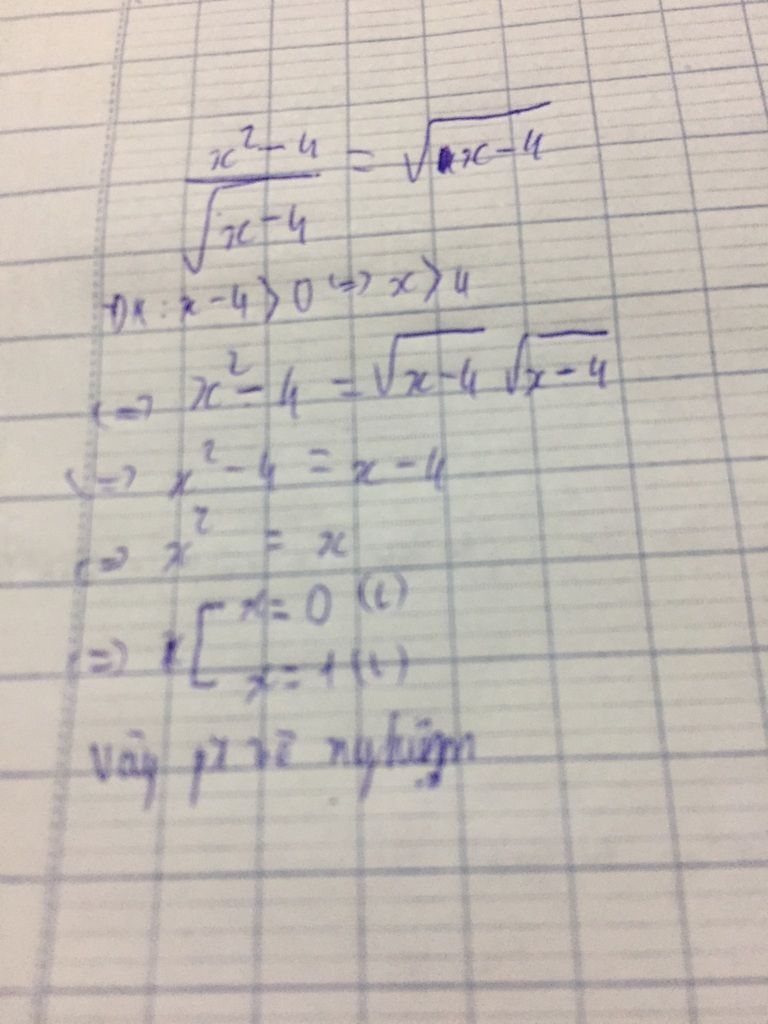 x² - 4 / √(x - 4) = √(x - 4)
ĐK: x - 4 > 0 <=> x > 4
<=> x² - 4 = √(x - 4) √(x - 4)
<=> x² - 4 = x - 4
<=> x² = x
<=> [ x = 0 (L)
x = 1 (L)
Vậy pt vô nghiệm